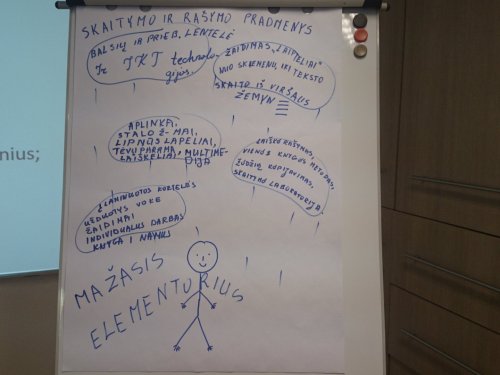 SKAITYMO IR RAŠYMO PRADMENYS
BALSIŲ IR PRIEB. LENTELĖ
Ir TKT technolo-
gijos.
ŽAIDIMAS „LAIPTELIAI"
NUO SKIEMENŲ, IKI TEKSTO
SKAITO IŠ VIRŠAUS
ŽEMYN
APLINKA:
STALO Ž-MAI,
LIPNŪS LAPELIAI,
TĖVŲ PARAMA, MULTIME-
LAIŠKELIAI DIJA
LAIŠKO RAŠYMAS,
VIENOS KNYGOS METODAS,
ŽODŽIŲ KOPIJAVIMAS,
SKAITYMO LABORATORIJA.
LAMINUOTOS KORTELĖS
UŽDUOTYS VOKE
ŽAIDIMAI
INDIVIDUALUS DARBAS
KNYGA
MAŽASIS
ELEMENTORIUS
nius;